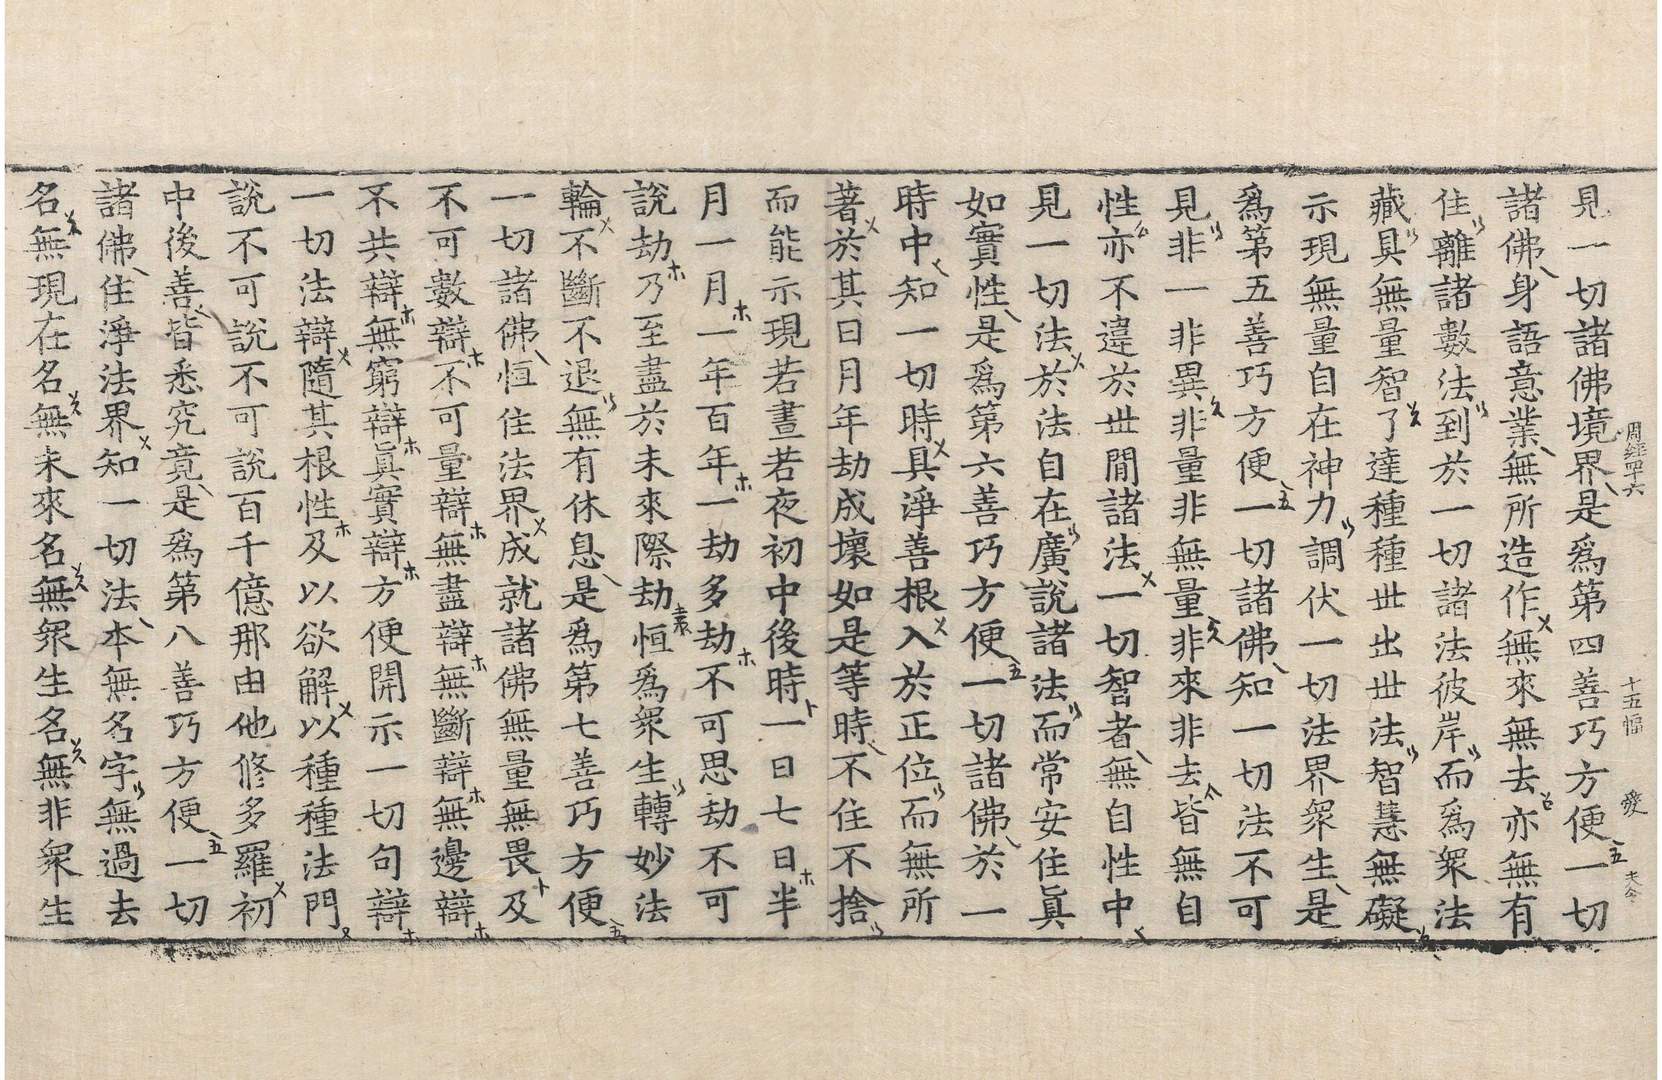 周經四十六　十五幅
見一切諸佛境界是爲第四善巧方便一切
諸佛身語意業無所造作無來無去亦無有
住離諸數法到於一切諸法彼岸而爲衆法
藏具無量智了達種種世出世法智慧無礙
示現無量自在神力調伏一切法界衆生是
爲第五善巧方便一切諸佛知一切法不可
見非一非異非量非無量非來非去皆無自
性亦不違於世間諸法一切智者無自性中
見一切法於法自在廣說諸法而常安住眞
如實性是爲第六善巧方便一切諸佛於一
時中知一切時具淨善根入於正位而無所
著於其日月年劫成壞如是等時不住不捨
而能示現若晝若夜初中後時一日七日半
月一月一年百年一劫多劫不可思劫不可
說劫乃至盡於未來際劫恒爲衆生轉妙法
輪不斷不退無有休息是爲第七善巧方便
一切諸佛恒住法界成就諸佛無量無畏及
不可數辯不可量辯無盡辯無斷辯無邊辯
不共辯無窮辯眞實辯方便開示一切句辯
一切法辯隨其根性及以欲解以種種法門
說不可說不可說百千億那由他修多羅初
中後善皆悉究竟是爲第八善巧方便一切
諸佛住淨法界知一切法本無名字無過去
名無現在名無未來名無衆生名無非衆生